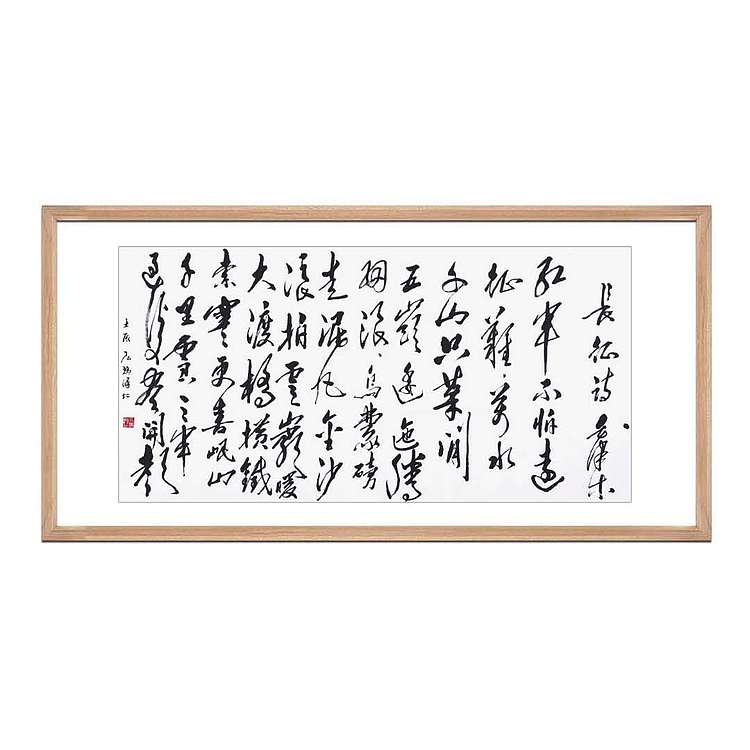 長征詩 毛澤東
红軍不怕遠
征難萬水
千山只等闲
五嶺逶迤腾
细浪烏蒙磅
走泥丸金沙
浪拍雲巖暖
大渡橋横鐵
索寒更喜岷山
千里雪三軍
過後盡開顏
壬辰